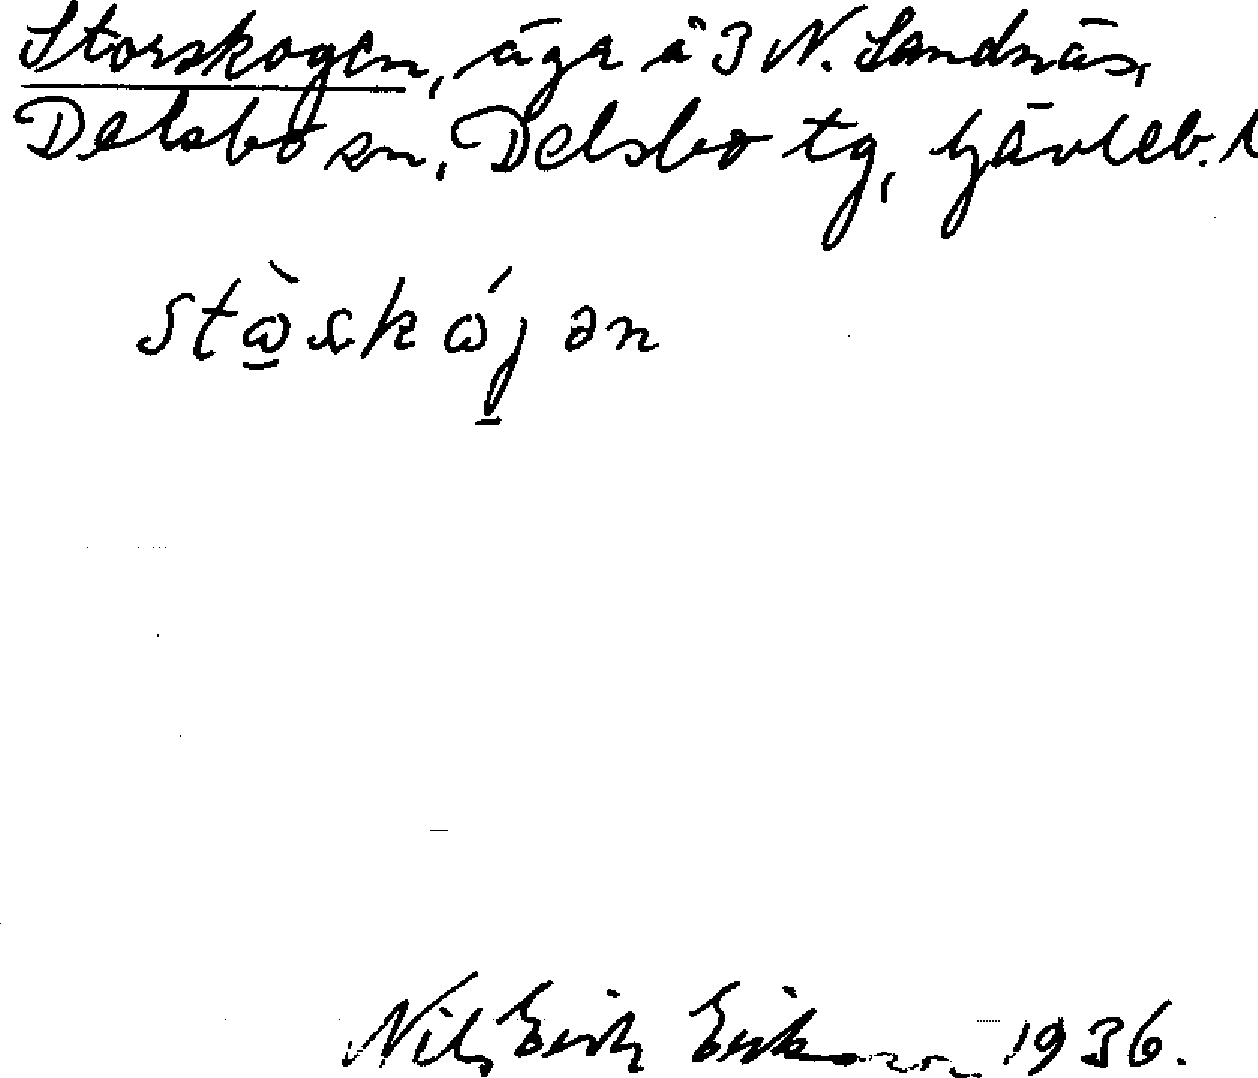 Storskogen, äga å 3 N. Sandnäs,
Delsbo sn, Delsbo tg, Gävleb. l
stɷ̀skɷ́jən
Nils Erik Eriksson 1936.